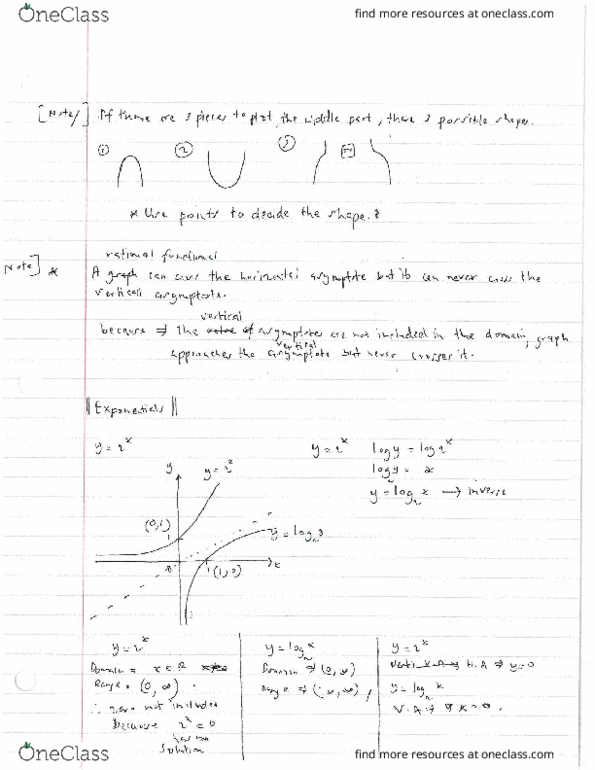 OneClass
find more resources at oneclass.com
[Note/] If there are 3 pieces to plot, the middle part, there 3 possible shapes.
① ② ③ or
* Use points to decide the shape.
rational functions
Note] * A graph can cross the horizontal asymptote but it can never cross the
vertical asymptote.
vertical
because ⇒ The asymptotes are not included in the domain, graph
vertical
approaches the asymptote but never crosses it.
|| Exponentials ||
y = 2^x
y = 2^x log y = log 2^x
log y = x
y = log_2 x → inverse
y
y = 2^x
(0,1)
1
y = log_2
0
1 (1,0)
x
y = 2^x
Domain = x ∈ R
Range = (0, ∞)
∴ zero not included
because 2^x = 0
has no
solution
y = log_2 x
Domain ⇒ (0, ∞)
Range ⇒ (-∞, ∞)
y = 2^x
H.A ⇒ y = 0
y = log_2 x
V.A ⇒ x = 0
OneClass
find more resources at oneclass.com